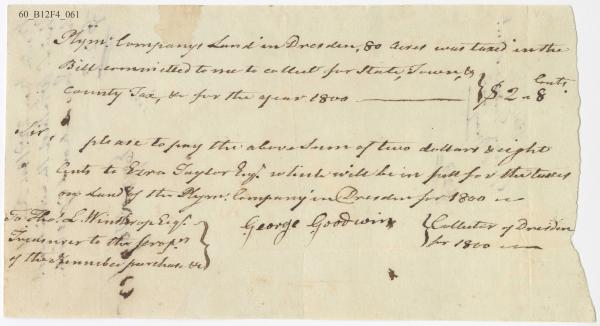 60_B12F4_061
Plymo. Companys Land in Dresden, 80 acres was taxed in the
Bill committed to me to collect for State, Town, &
County Tax, &c for the year 1800 } $ 2.. 8 Cents.
Sir
please to pay the above Sum of two dollars & eight
Cents to Ezra Taylor Esqr. which will be in full for the taxes
on Land of the Plymo. Company in Dresden for 1800
To Thos. L. Winthrop Esqr.
Treasurer to the Proprs.
of the Kennebec purchase &c }
George Goodwin { Collector of Dresden
for 1800